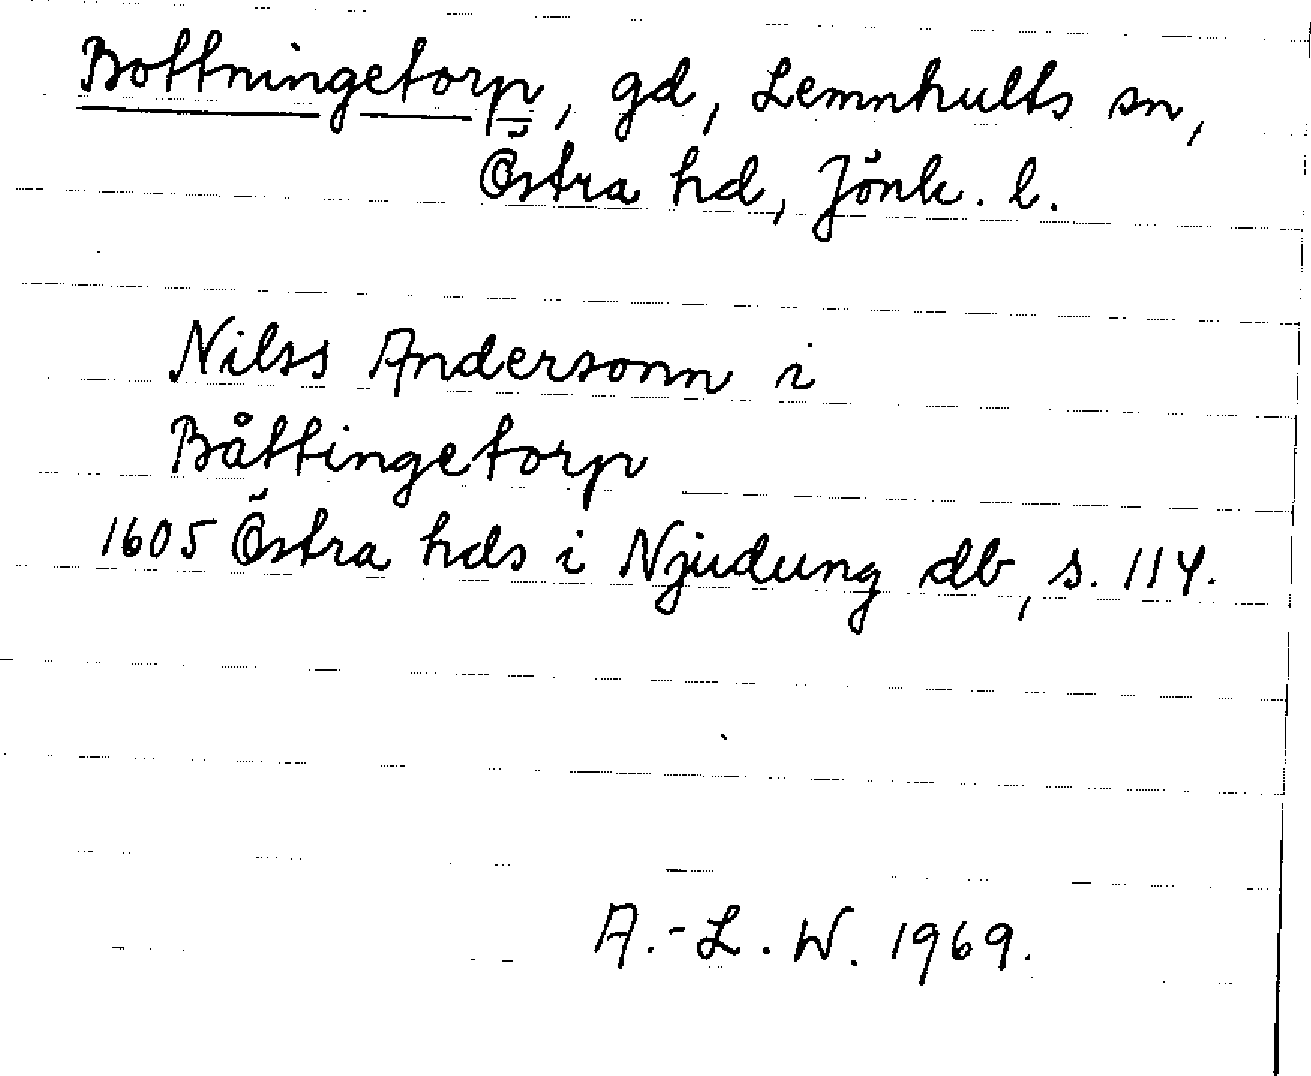 Bottningetorp, gd, Lemnhults sn,
Östra hd, Jönk. l.
Nilss Andersonn i
Båttingetorp
1605 Östra hds i Njudung db, s. 114.
A.-L. W. 1969.